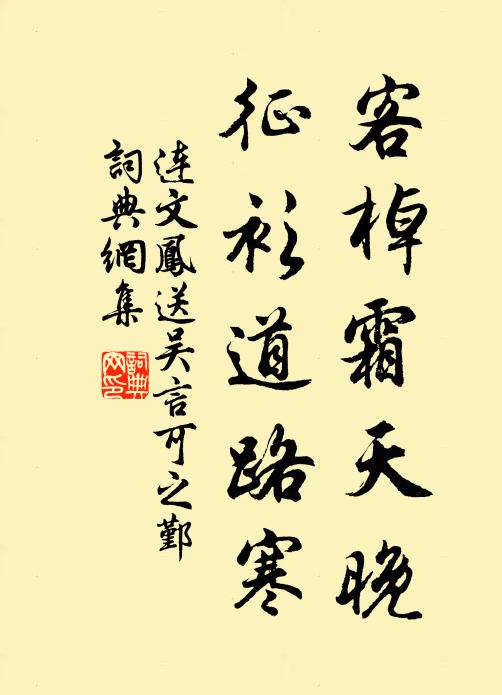 客棹霜天晚
征衫道路寒
连文鳳送吴言可之鄞
詞典網集
詞典
网印